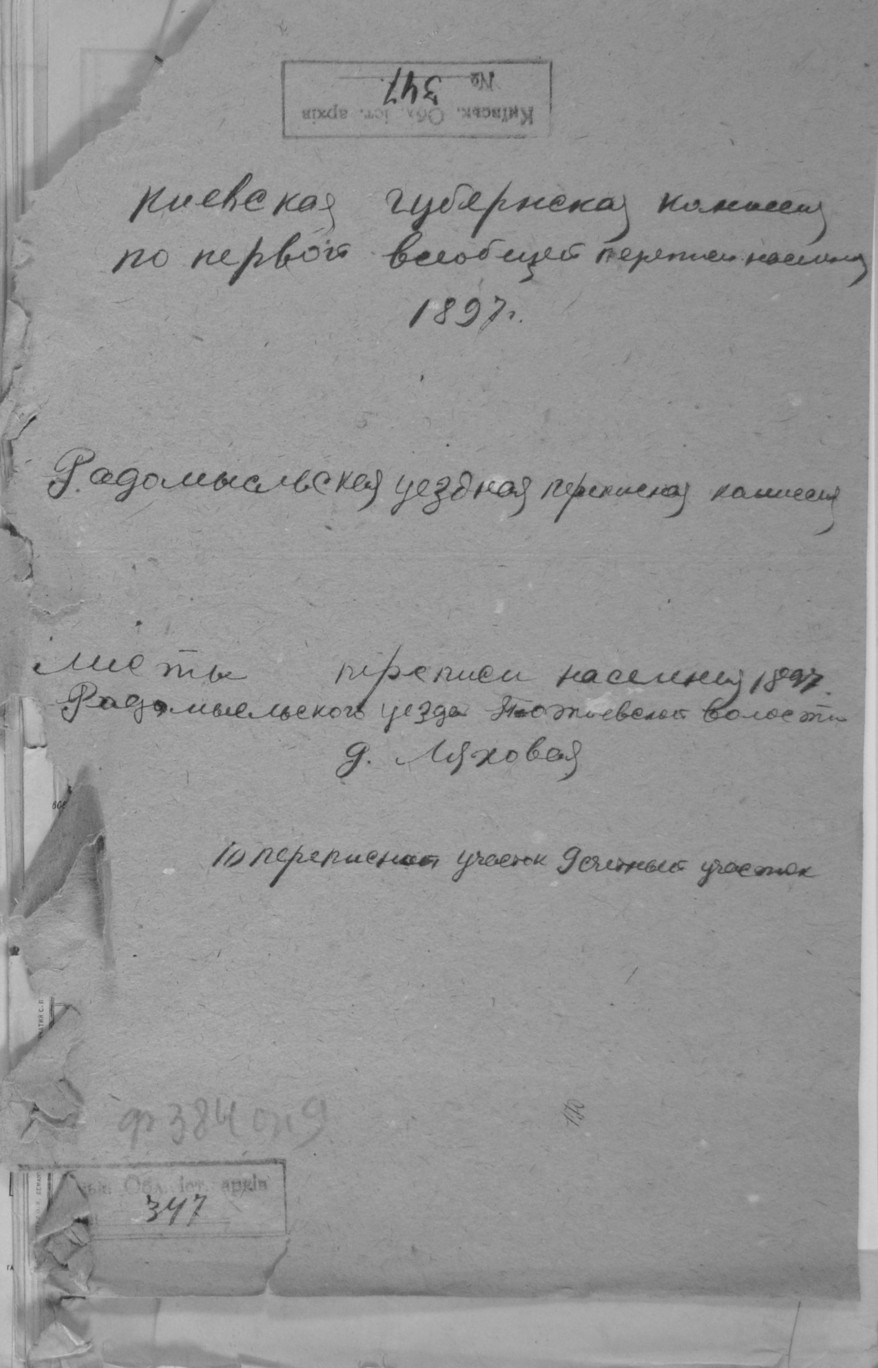 Київськ. Обл. іст. архів
№ 347
Киевская губернская комиссия
по первой всеобщей переписи населения
1897г.
Радомысльская уездная переписная комиссия
Листы переписи населения 1897.
Радомысльского уезда волости
д. Ляховая
10 переписной участок 9 счетный участок
ф 384 оп 9
Обл. іст. архів
347